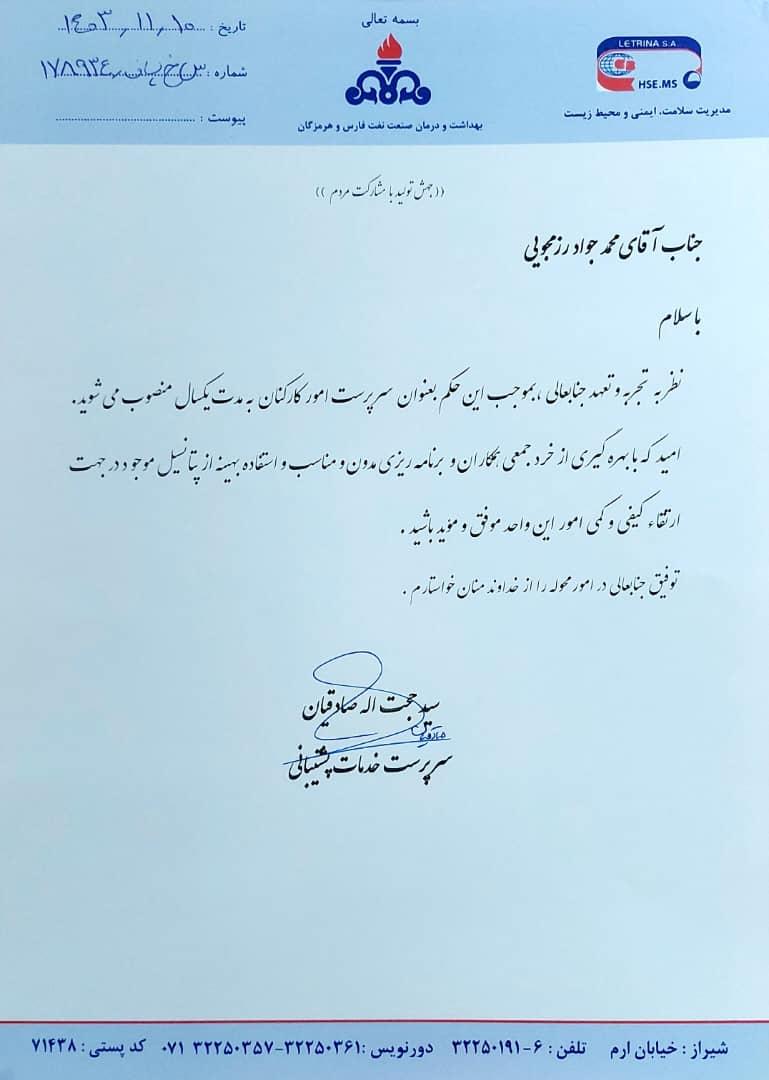 بسمه تعالی
تاریخ : ۱۴۰۳,۱۱,۱۰
شماره : ۱۷۸۹۳۴
پیوست : ................
بهداشت و درمان صنعت نفت فارس و هرمزگان
LETRINA S.A.
HSE.MS
مدیریت سلامت، ایمنی و محیط زیست
((جهش تولید با مشارکت مردم ))
جناب آقای محمد جواد رزمجویی
با سلام
نظر به تجربه و تعهد جنابعالی ، بموجب این حکم بعنوان سرپرست امور کارکنان به مدت یکسال منصوب می شوید .
امید که با بهره گیری از خرد جمعی همکاران و برنامه ریزی مدون و مناسب و استفاده بهینه از پتانسیل موجود در جهت
ارتقاء کیفی و کمی امور این واحد موفق و مؤید باشید .
توفیق جنابعالی در امور محوله را از خداوند منان خواستارم .
سید حجت اله صادقیان
سرپرست خدمات پشتیبانی
شیراز : خیابان ارم تلفن : ۶-۳۲۲۵۰۱۹۱ دورنویس :۳۲۲۵۰۳۶۱-۳۲۲۵۰۳۵۷ ۰۷۱ کد پستی : ۷۱۴۳۸